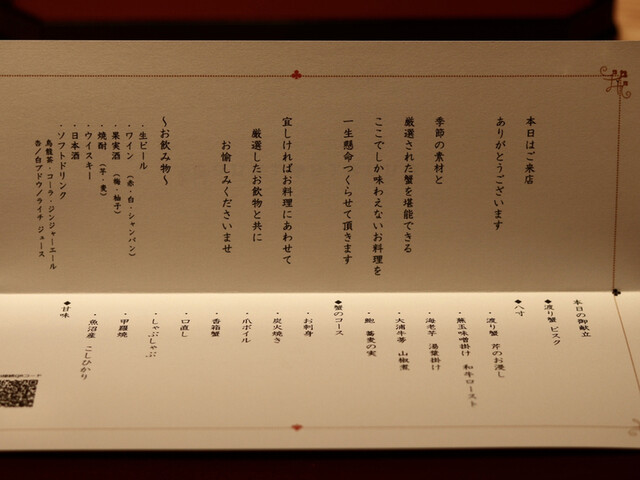 本日はご来店
ありがとうございます
季節の素材と
厳選された蟹を堪能できる
ここでしか味わえないお料理を
一生懸命つくらせて頂きます
宜しければお料理にあわせて
厳選したお飲物と共に
お愉しみくださいませ
～お飲み物～
・生ビール
・ワイン（赤・白・シャンパン）
・果実酒（梅・柚子）
・焼酎（芋・麦）
・ウイスキー
・日本酒
・ソフトドリンク
烏龍茶・コーラ・ジンジャーエール
赤／白ブドウ／ライチ ジュース
本日の御献立
◆渡り蟹 ビスク
◆八寸
・渡り蟹 芹のお浸し
・無玉味噌掛け 和牛ロースト
・海老芋 湯葉掛け
・大浦牛蒡 山椒煮
・鮑 蕎麦の実
◆蟹のコース
・お刺身
・炭火焼き
・爪ボイル
・香箱蟹
・口直し
・しゃぶしゃぶ
・甲羅焼
・魚沼産 こしひかり
◆甘味